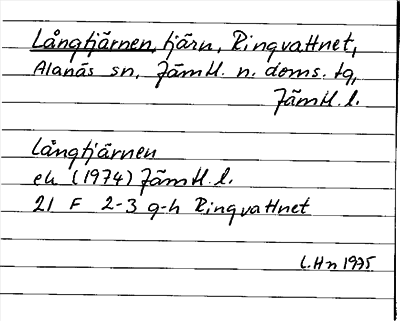 Långtjärnen, tjärn, Ringvattnet,
Alanäs sn, Jämtl. n. doms. tg,
Jämtl. l.
Långtjärnen
ek (1974) Jämtl. l.
21 F 2-3 g-h Ringvattnet
L.Hn 1975